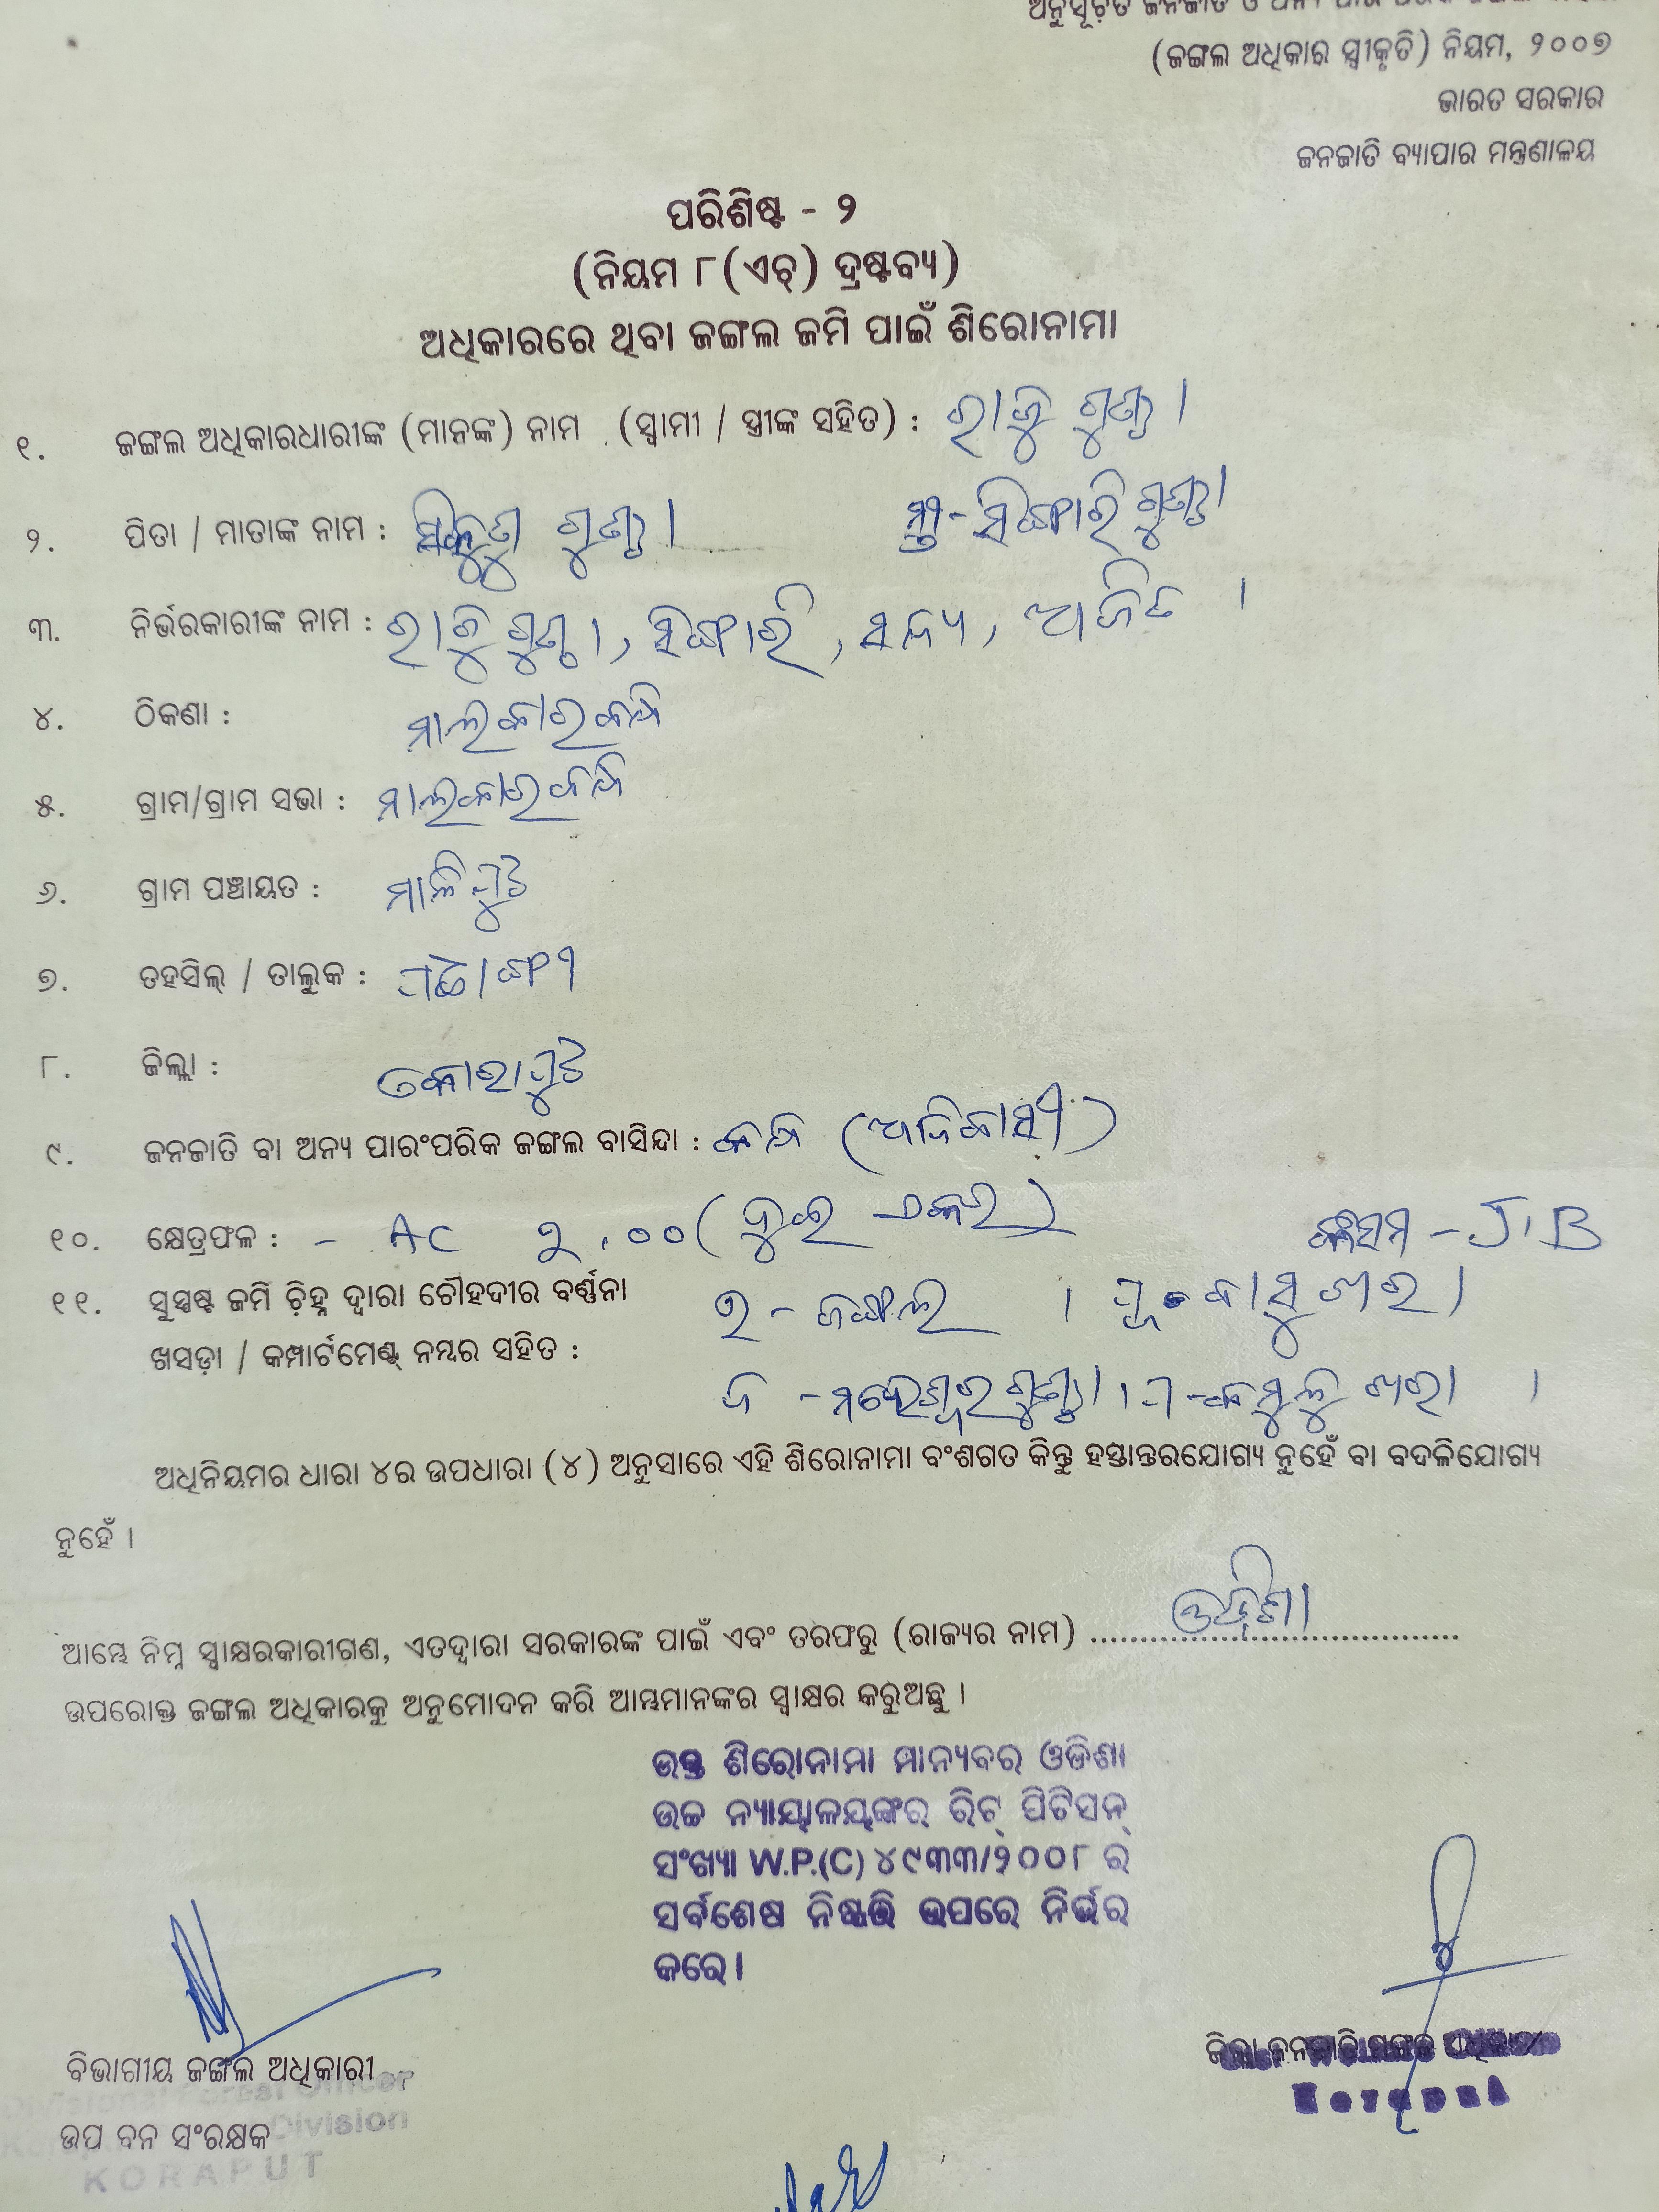 (ଜଙ୍ଗଲ ଅଧିକାର ସ୍ୱୀକୃତି) ନିୟମ, ୨୦୦୭
ଭାରତ ସରକାର
ଜନଜାତି ବ୍ୟାପାର ମନ୍ତ୍ରଣାଳୟ
ପରିଶିଷ୍ଟ - ୨
(ନିୟମ ୮(ଏଚ୍) ଦ୍ରଷ୍ଟବ୍ୟ)
ଅଧିକାରରେ ଥିବା ଜଙ୍ଗଲ ଜମି ପାଇଁ ଶିରୋନାମା
୧. ଜଙ୍ଗଲ ଅଧିକାରଧାରୀଙ୍କ (ମାନଙ୍କ) ନାମ (ସ୍ୱାମୀ / ସ୍ତ୍ରୀଙ୍କ ସହିତ) : ରାଜୁ ଗୁଣ୍ଠା
୨. ପିତା / ମାତାଙ୍କ ନାମ : ଗୁଣ୍ଠା ସ୍ତ୍ରୀ-ସିଙ୍ଗାରି ଗୁଣ୍ଠା
୩. ନିର୍ଭରକାରୀଙ୍କ ନାମ : ରାଜୁ ଗୁଣ୍ଠା, ସିଙ୍ଗାରି, ଅଜିତ ।
୪. ଠିକଣା : ମାଲକାରବନ୍ଧ
୫. ଗ୍ରାମ/ଗ୍ରାମ ସଭା : ମାଲକାରବନ୍ଧ
୬. ଗ୍ରାମ ପଞ୍ଚାୟତ : ମାଳିପୁଟ
୭. ତହସିଲ୍ / ତାଲୁକ : ପଟାଙ୍ଗୀ
୮. ଜିଲ୍ଲା : କୋରାପୁଟ
୯. ଜନଜାତି ବା ଅନ୍ୟ ପାରଂପରିକ ଜଙ୍ଗଲ ବାସିନ୍ଦା : କନ୍ଧ (ଆଦିବାସୀ)
୧୦. କ୍ଷେତ୍ରଫଳ : - AC ୨.୦୦ (ଦୁଇ ଏକର) କିସମ - J.B
୧୧. ସୁସ୍ପଷ୍ଟ ଜମି ଚିହ୍ନ ଦ୍ୱାରା ଚୌହଦୀର ବର୍ଣ୍ଣନା ଉ - ଜଙ୍ଗଲ । ପୂ- ବାସୁ ଖରା
ଖସଡ଼ା / କମ୍ପାର୍ଟମେଣ୍ଟ୍ ନମ୍ବର ସହିତ :
ଦ - ଗୁଣ୍ଠା । ପ - ଖରା ।
ଅଧିନିୟମର ଧାରା ୪ର ଉପଧାରା (୪) ଅନୁସାରେ ଏହି ଶିରୋନାମା ବଂଶଗତ କିନ୍ତୁ ହସ୍ତାନ୍ତରଯୋଗ୍ୟ ନୁହେଁ ବା ବଦଳିଯୋଗ୍ୟ
ନୁହେଁ ।
ଆମ୍ଭେ ନିମ୍ନ ସ୍ୱାକ୍ଷରକାରୀଗଣ, ଏତଦ୍ୱାରା ସରକାରଙ୍କ ପାଇଁ ଏବଂ ତରଫରୁ (ରାଜ୍ୟର ନାମ) ଓଡ଼ିଶା
ଉପରୋକ୍ତ ଜଙ୍ଗଲ ଅଧିକାରକୁ ଅନୁମୋଦନ କରି ଆମ୍ଭମାନଙ୍କର ସ୍ୱାକ୍ଷର କରୁଅଛୁ ।
ଉକ୍ତ ଶିରୋନାମା ମାନ୍ୟବର ଓଡିଶା
ଉଚ୍ଚ ନ୍ୟାୟାଳୟଙ୍କର ରିଟ୍ ପିଟିସନ୍
ସଂଖ୍ୟା W.P.(C) ୪୯୩୩/୨୦୦୮ ର
ସର୍ବଶେଷ ନିଷ୍ପତ୍ତି ଉପରେ ନିର୍ଭର
କରେ।
ବିଭାଗୀୟ ଜଙ୍ଗଲ ଅଧିକାରୀ
ଜିଲ୍ଲା ଜନଜାତି ମଙ୍ଗଳ ଅଧିକାରୀ
Koraput
ଉପ ବନ ସଂରକ୍ଷକ
Division
KORAPUT